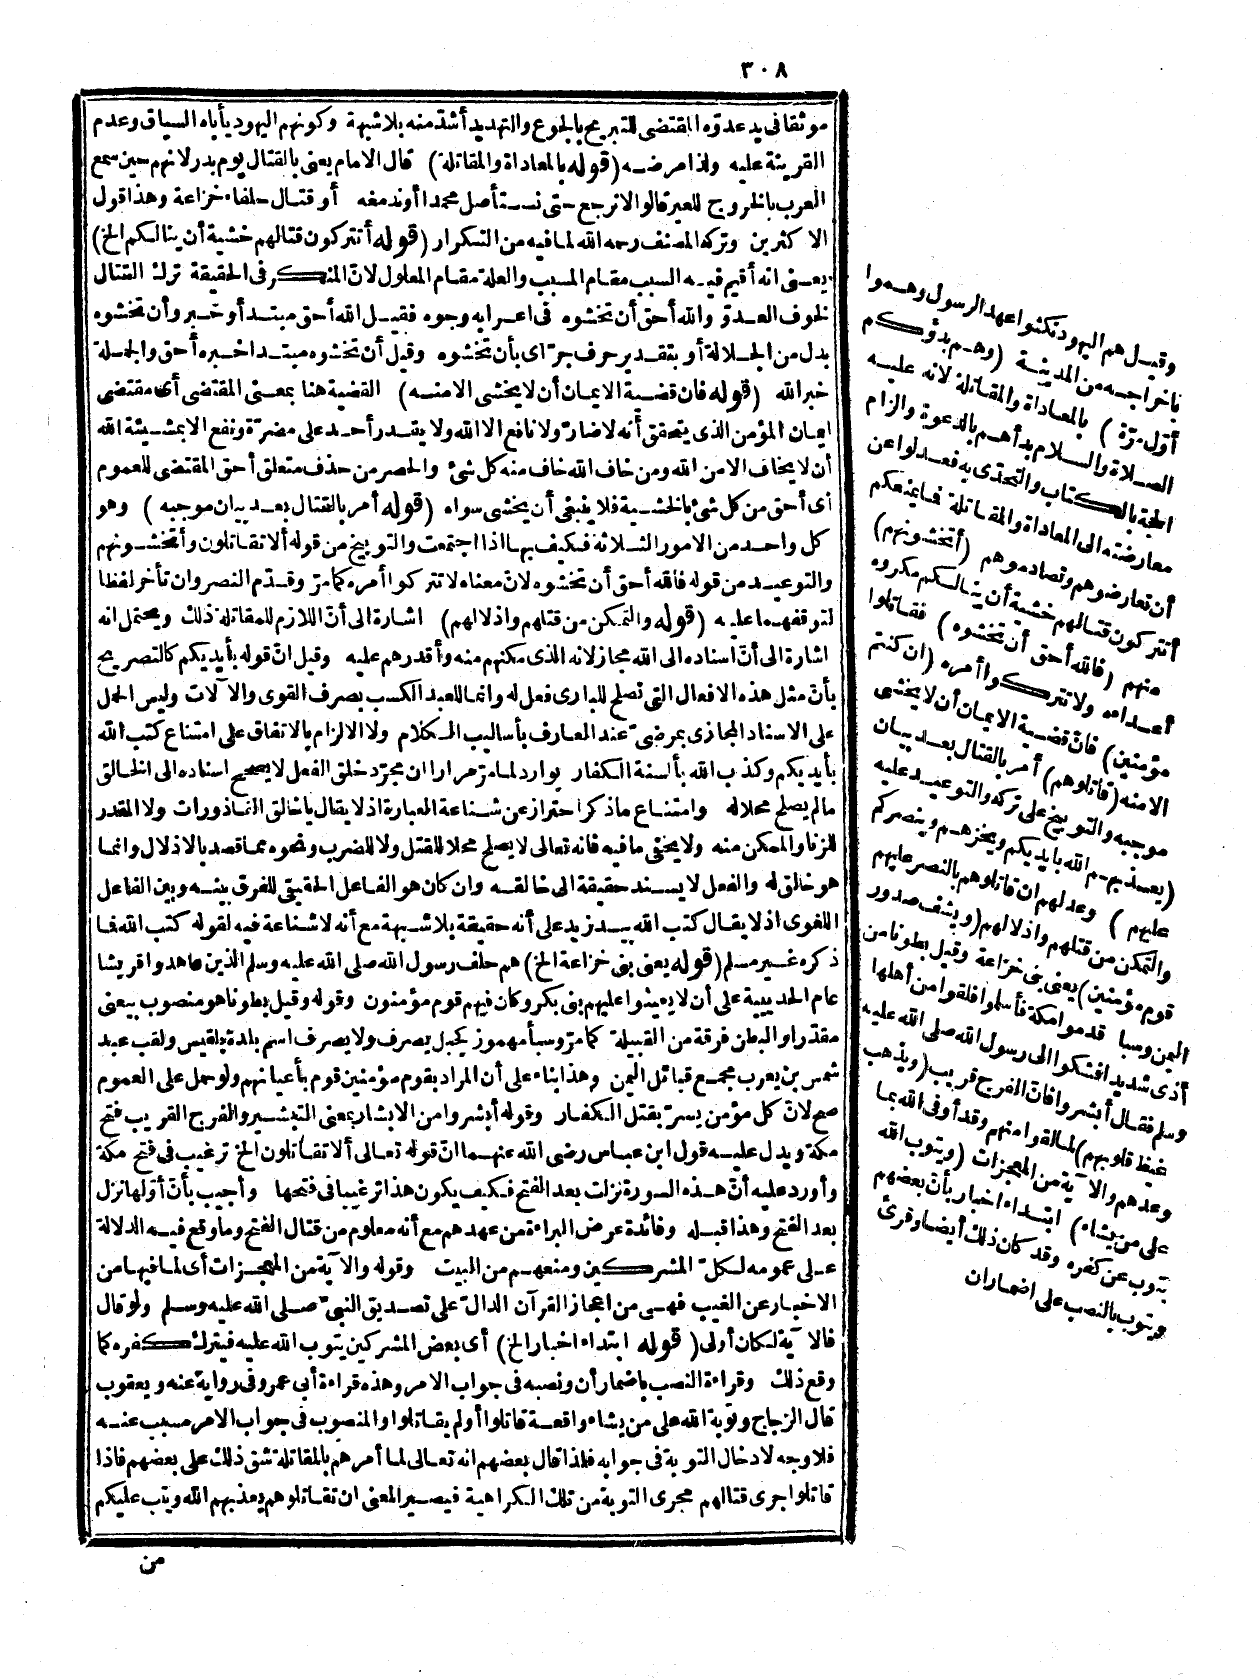 ٣٠٨
موثقا في يد عدوّه المقتضى للتبريح بالجوع والتهديد أشدّ منه بلا شبهة وكونهم اليهود يأباه السياق وعدم
القرينة عليه ولذا مرضه (قوله بالمعاداة والمقاتلة) قال الامام يعنى بالقتال يوم بدر لانهم حين سمع
العرب بالخروج للعير قالوا لا نرجع حتى نستأصل محمدا أوندمغه أو قتال حلفاء خزاعة وهذا قول
الاكثرين وتركه المصنف رحمه الله لما فيه من التكرار (قوله أتتركون قتالهم خشية أن ينالكم الخ)
يعنى انه أقيم فيه السبب مقام المسبب والعلة مقام المعلول لانّ المنكر في الحقيقة ترك القتال
لخوف العدوّ والله أحق أن تخشوه في اعرابه وجوه فقيل الله أحق مبتدأ وخبر وأن تخشوه
بدل من الجلالة أو بتقدير حرف جرّ اى بأن تخشوه وقيل أن تخشوه مبتدا خبره أحق والجملة
خبر الله (قوله فان قضية الايمان أن لا يخشى الا منه) القضية هنا بمعنى المقتضى أى مقتضى
ايمان المؤمن الذى يتحقق أنه لا ضارّ ولا نافع الا الله ولا يقدر أحد على مضرّة ونفع الا بمشيئة الله
أن لا يخاف الا من الله ومن خاف الله خاف منه كل شئ والحصر من حذف متعلق أحق المقتضى للعموم
أى أحق من كل شئ بالخشية فلا ينبغى أن يخشى سواه (قوله أمر بالقتال بعد بيان موجبه) وهو
كل واحد من الامور الثلاثه فكيف بها اذا اجتمعت والتوبيخ من قوله ألا تقاتلون وأتخشونهم
والتوعيد من قوله فالله أحق أن تخشوه لانّ معناه لا تتركوا أمره كما مرّ وقدّم النصر وان تأخر لفظا
لتوقفهما عليه (قوله والتمكن من قتلهم واذلالهم) اشارة الى أنّ اللازم للمقاتلة ذلك ويحتمل انه
اشارة الى أنّ اسناده الى الله مجاز لانه الذى مكنهم منه وأقدرهم عليه وقيل انّ قوله بأيديكم كالتصريح
بأن مثل هذه الافعال التى تصلح للبارى فعل له وانما للعبد الكسب بصرف القوى والآلات وليس الحمل
على الاسناد المجازى بمرضىّ عند العارف بأساليب الكلام ولا الالزام بالاتفاق على امتناع كتب الله
بأيديكم وكذب الله بألسنة الكفار بوارد لما مرّ مرارا ان مجرّد خلق الفعل لا يصحح اسناده الى الخالق
ما لم يصلح محلا له وامتناع ما ذكر احتراز عن شناعة العبارة اذ لا يقال يا خالق القاذورات ولا المقدر
للزنا والممكن منه ولا يخفى ما فيه فانه تعالى لا يصلح محلا للقتل ولا للضرب ونحوه مما قصد بالاذلال وانما
هو خالق له والفعل لا يسند حقيقة الى خالقه وان كان هو الفاعل الحقيقى للفرق بينه وبين الفاعل
اللغوى اذ لا يقال كتب الله بيد زيد على أنه حقيقة بلا شبهة مع أنه لا شناعة فيه لقوله كتب الله فما
ذكره غير مسلم (قوله يعنى بنى خزاعة الخ) هم حلف رسول الله صلى الله عليه وسلم الذين عاهدوا قريشا
عام الحديبية على أن لا يعينوا عليهم بنى بكر وكان فيهم قوم مؤمنون وقوله وقيل بطونا هو منصوب بيعنى
مقدرا والبطن فرقة من القبيلة كما مرّ وسبأ مهموز كجبل يصرف ولا يصرف اسم بلدة بلقيس ولقب عبد
شمس بن يعرب مجمع قبائل اليمن وهذا بناء على أن المراد بقوم مؤمنين قوم بأعيانهم ولو حمل على العموم
صح لانّ كل مؤمن يسرّ بقتل الكفار وقوله أبشروا من الابشار بمعنى التبشير والفرج القريب فتح
مكة ويدل عليه قول ابن عباس رضى الله عنهما انّ قوله تعالى ألا تقاتلون الخ ترغيب في فتح مكة
وأورد عليه أنّ هذه السورة نزلت بعد الفتح فكيف يكون هذا ترغيبا في فتحها وأجيب بأنّ أوّلها نزل
بعد الفتح وهذا قبله وفائدة عرض البراءة من عهدهم مع أنه معلوم من قتال الفتح وما وقع فيه الدلالة
على عمومه لكلّ المشركين ومنعهم من البيت وقوله والآية من المعجزات أى لما فيها من
الاخبار عن الغيب فهى من اعجاز القرآن الدالّ على تصديق النبىّ صلى الله عليه وسلم ولو قال
فالآية لكان أولى (قوله ابتداء اخبار الخ) أى بعض المشركين يتوب الله عليه فيترك كفره كما
وقع ذلك وقراءة النصب باضمار أن ونصبه في جواب الامر وهذه قراءة أبى عمرو في رواية عنه ويعقوب
قال الزجاج وتوبة الله على من يشاء واقعة قاتلوا أو لم يقاتلوا والمنصوب في جواب الامر مسبب عنه
فلا وجه لادخال التوبة في جوابه فلذا قال بعضهم انه تعالى لما أمرهم بالمقاتلة شق ذلك على بعضهم فاذا
قاتلوا جرى قتالهم مجرى التوبة من تلك الكراهية فيصير المعنى ان تقاتلوهم يعذبهم الله ويتب عليكم
من
وقيل هم اليهود نكثوا عهد الرسول وهموا
باخراجه من المدينة (وهم بدؤكم
أوّل مرّة) بالمعاداة والمقاتلة لانه عليه
الصلاة والسلام بدأهم بالدعوة والزام
الحجة بالكتاب والتحدّى به فعدلوا عن
معارضته الى المعاداة والمقاتلة فما يمنعكم
أن تعارضوهم وتصادموهم (أتخشونهم)
أتتركون قتالهم خشية أن ينالكم مكروه
منهم (فالله أحق أن تخشوه) فقاتلوا
أعداءه ولا تتركوا أمره (ان كنتم
مؤمنين) فانّ قضية الايمان أن لا يخشى
الا منه (قاتلوهم) أمر بالقتال بعد بيان
موجبه والتوبيخ على تركه والتوعيد عليه
(يعذبهم الله بأيديكم ويخزهم وينصركم
عليهم) وعد لهم ان قاتلوهم بالنصر عليهم
والتمكن من قتلهم واذلالهم (ويشف صدور
قوم مؤمنين) يعنى بنى خزاعة وقيل بطونا من
اليمن وسبا قدموا مكة فأسلموا فلقوا من أهلها
أذى شديدا فشكوا الى رسول الله صلى الله عليه
وسلم فقال أبشروا فانّ الفرج قريب (ويذهب
غيظ قلوبهم) لما لقوا منهم وقد أوفى الله بما
وعدهم والآية من المعجزات (ويتوب الله
على من يشاء) ابتداء اخبار بأن بعضهم
يتوب عن كفره وقد كان ذلك أيضا وقرئ
ويتوب بالنصب على اضمار ان